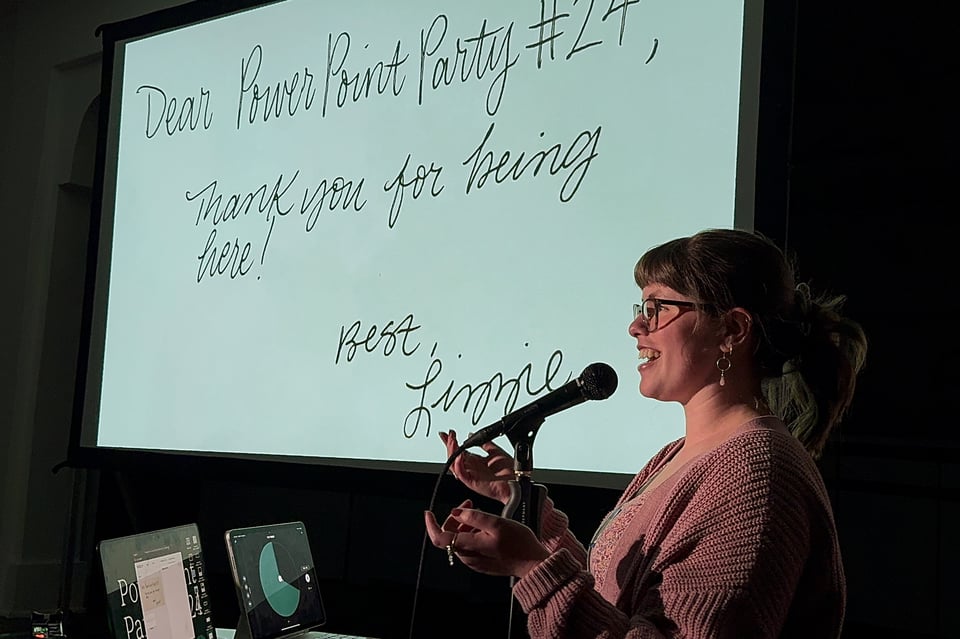 Dear PowerPoint Party #24,
Thank you for being
here!
Best,
Lizzie
Po
Pa